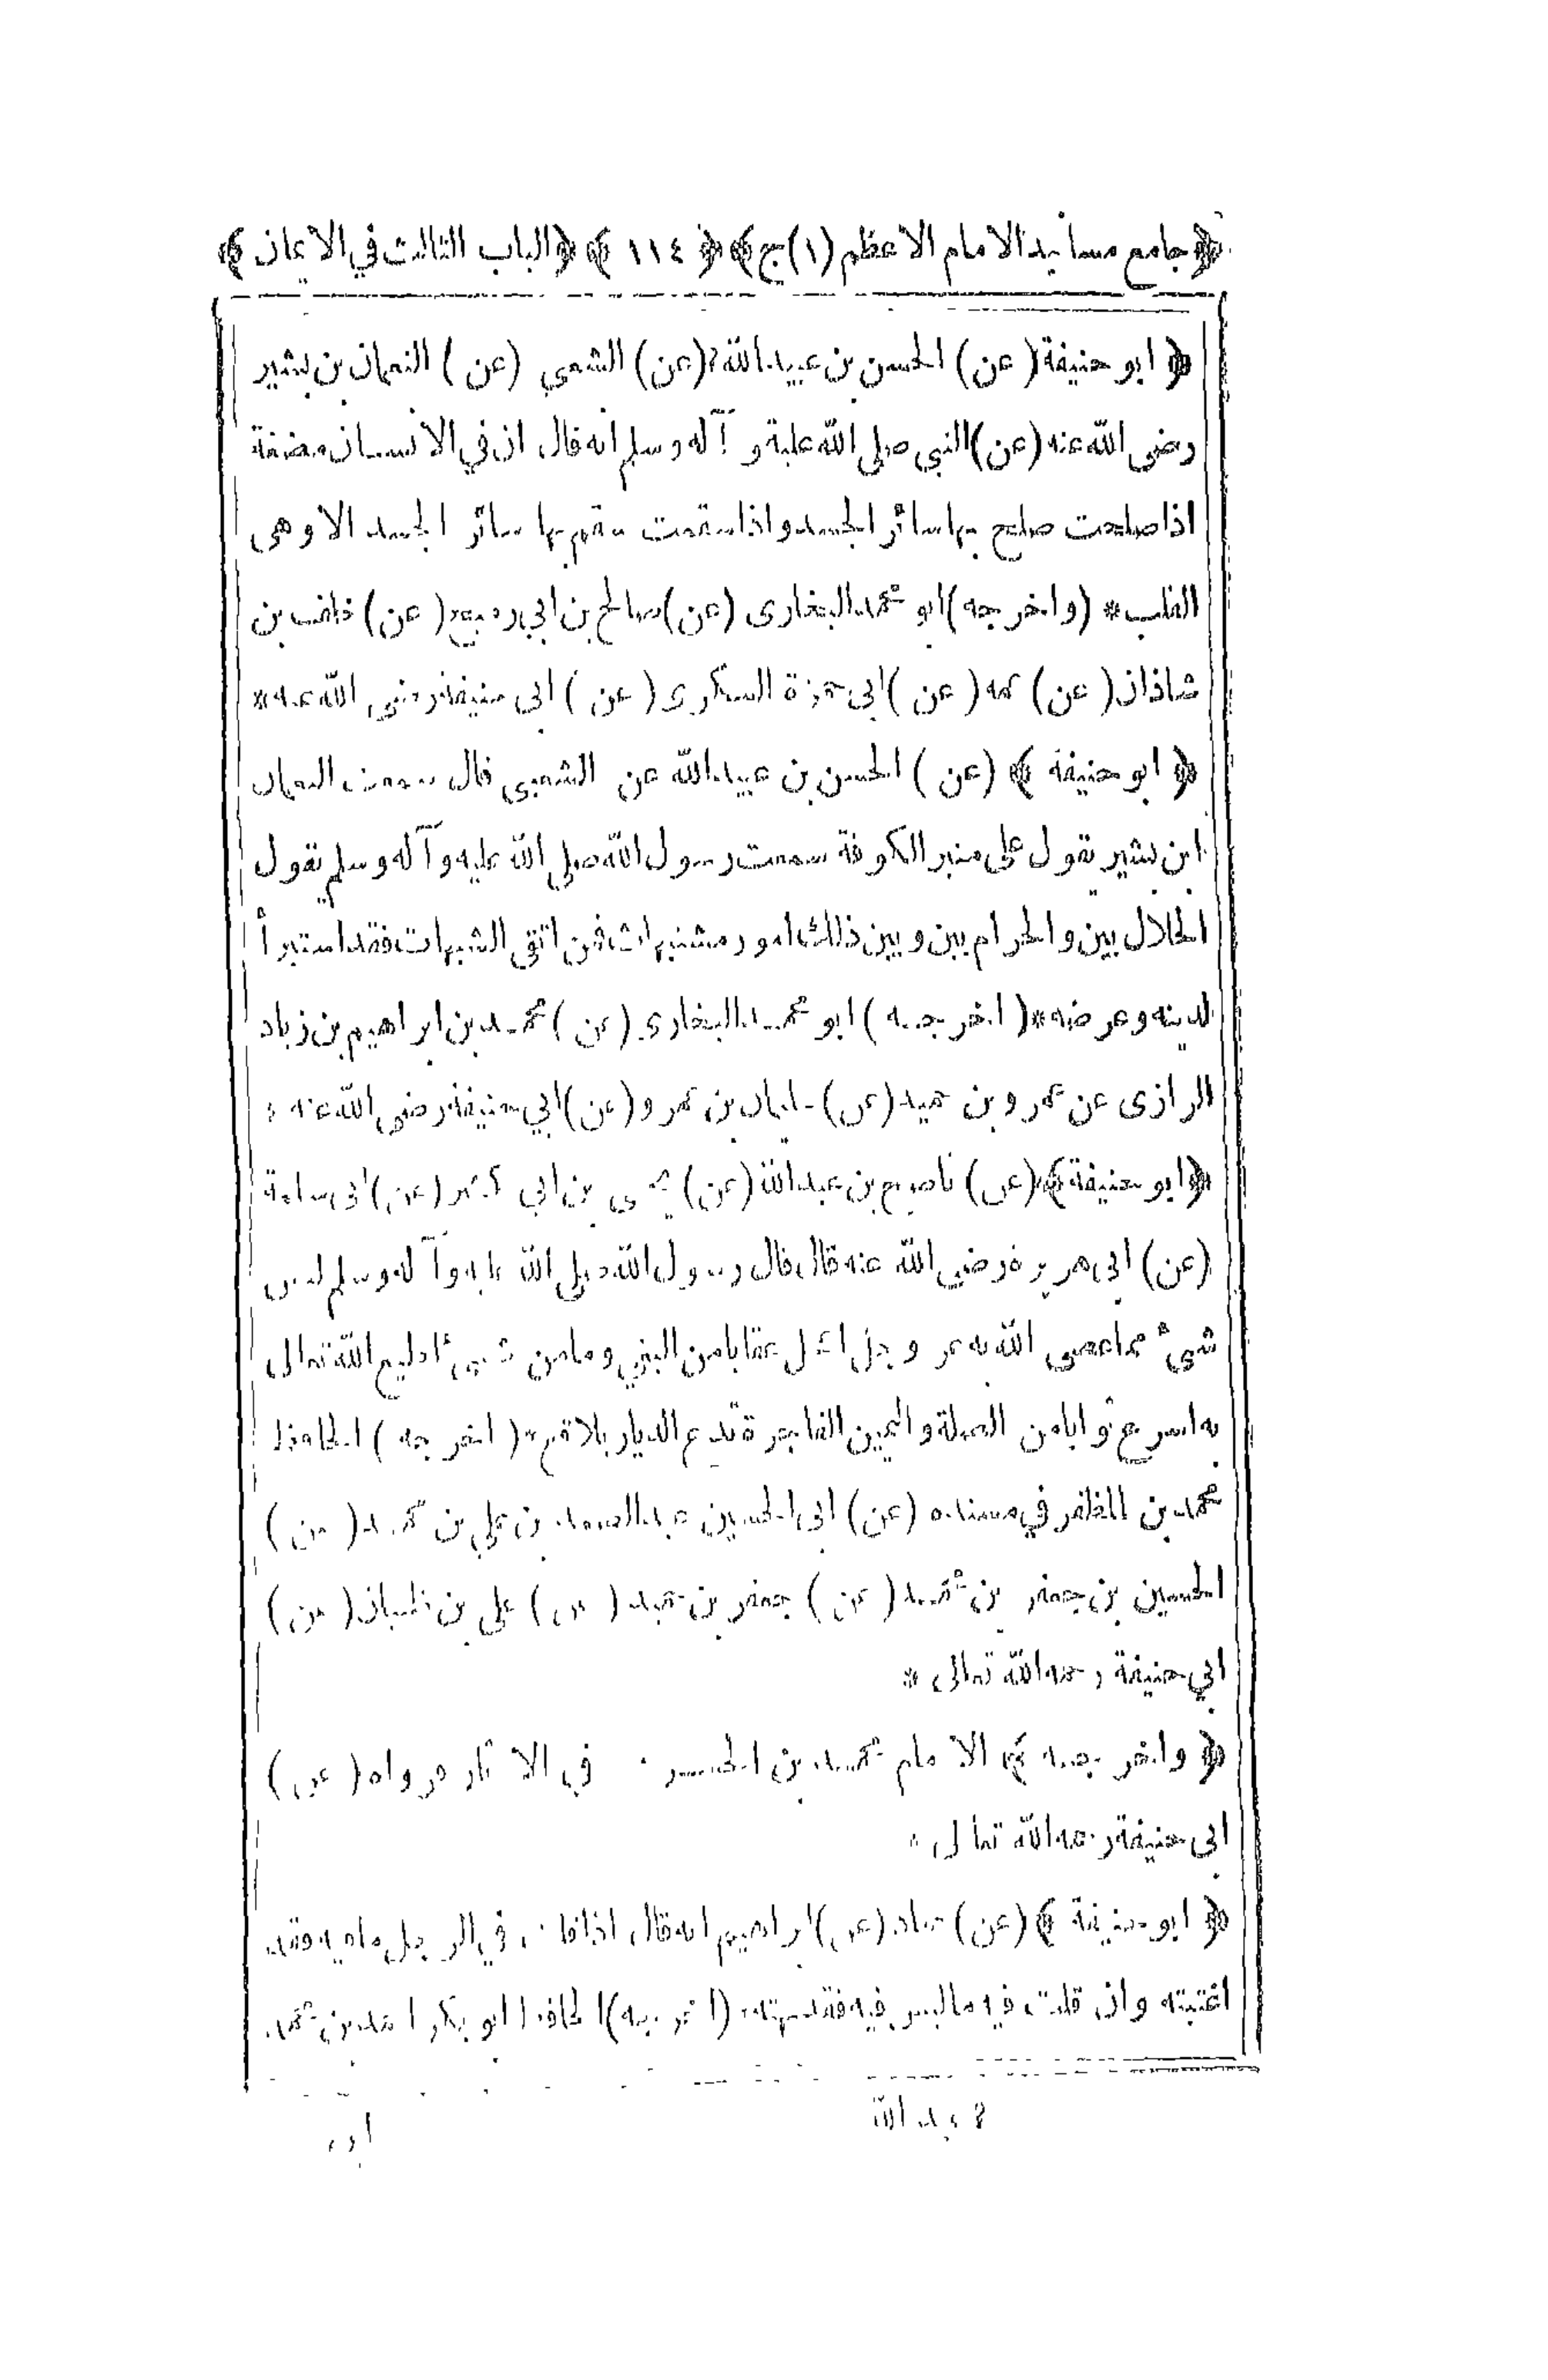 ﴿جامع مسانيد الامام الاعظم (١) ج﴾ ﴿ ١١٤ ﴾ ﴿الباب الثالث في الايمان﴾
﴿ ابو حنيفة (عن) الحسن بن عبيد الله ٢ (عن) الشعبي (عن) النعمان بن بشير
رضى الله عنه (عن) النبي صلى الله عليه و آله وسلم انه قال ان في الانسان مضغة
اذا صلحت صلح بها سائر الجسد واذا سقمت سقم بها سائر الجسد الا وهى
القلب * (واخرجه) ابو محمد البخارى (عن) صالح بن ابي رميح (عن) خلف بن
شاذان (عن) عمه (عن) ابى حمزة السكرى (عن) ابى حنيفة رضى الله عنه *
﴿ ابو حنيفة ﴾ (عن) الحسن بن عبيد الله عن الشعبي قال سمعت النعمان
ابن بشير يقول على منبر الكوفة سمعت رسول الله صلى الله عليه وآله وسلم يقول
الحلال بين والحرام بين وبين ذلك امور مشتبهات فمن اتقى الشبهات فقد استبرأ
لدينه وعرضه * (اخرجه) ابو محمد البخاري (عن) محمد بن ابراهيم بن زياد
الرازى عن عمرو بن حميد (عن) سليمان بن عمرو (عن) ابي حنيفة رضى الله عنه *
﴿ابو حنيفة﴾ (عن) ناصح بن عبد الله (عن) يحيى بن ابي كثير (عن) ابى سلمة
(عن) ابى هريرة رضى الله عنه قال قال رسول الله صلى الله عليه وآله وسلم ليس
شىء مما عصى الله به عز وجل اعجل عقابا من البغي وما من شىء اطيع الله تعالى
به اسرع ثوابا من الصلة واليمين الفاجرة تدع الديار بلاقع * (اخرجه) الحافظ
محمد بن المظفر في مسنده (عن) ابى الحسين عبد الصمد بن علي بن محمد (عن)
الحسين بن جعفر بن محمد (عن) جعفر بن حميد (عن) على بن ظبيان (عن)
ابي حنيفة رحمه الله تعالى *
﴿ واخرجه ﴾ الامام محمد بن الحسن في الاثار فرواه (عن)
ابى حنيفة رحمه الله تعالى *
﴿ ابو حنيفة ﴾ (عن) حماد (عن) ابراهيم انه قال اذا قلت في الرجل ما فيه فقد
اغتبته وان قلت فيه ما ليس فيه فقد بهته * (اخرجه) الحافظ ابو بكر احمد بن محمد
٢ عبد الله
ابن